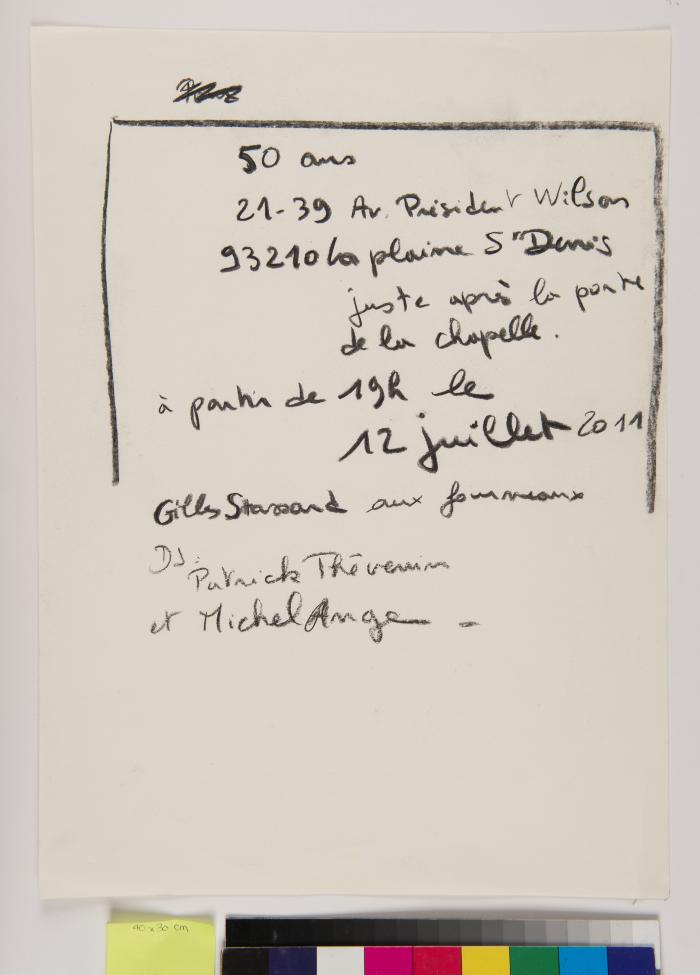 50 ans
21-39 Av. Président Wilson
93210 La plaine St Denis
juste après la porte
de la chapelle.
à partir de 19h le
12 juillet 2011
Gilles Stassart aux fourneaux
DJ:
Patrick Thévenin
et Michel Ange -
40 x 30 cm